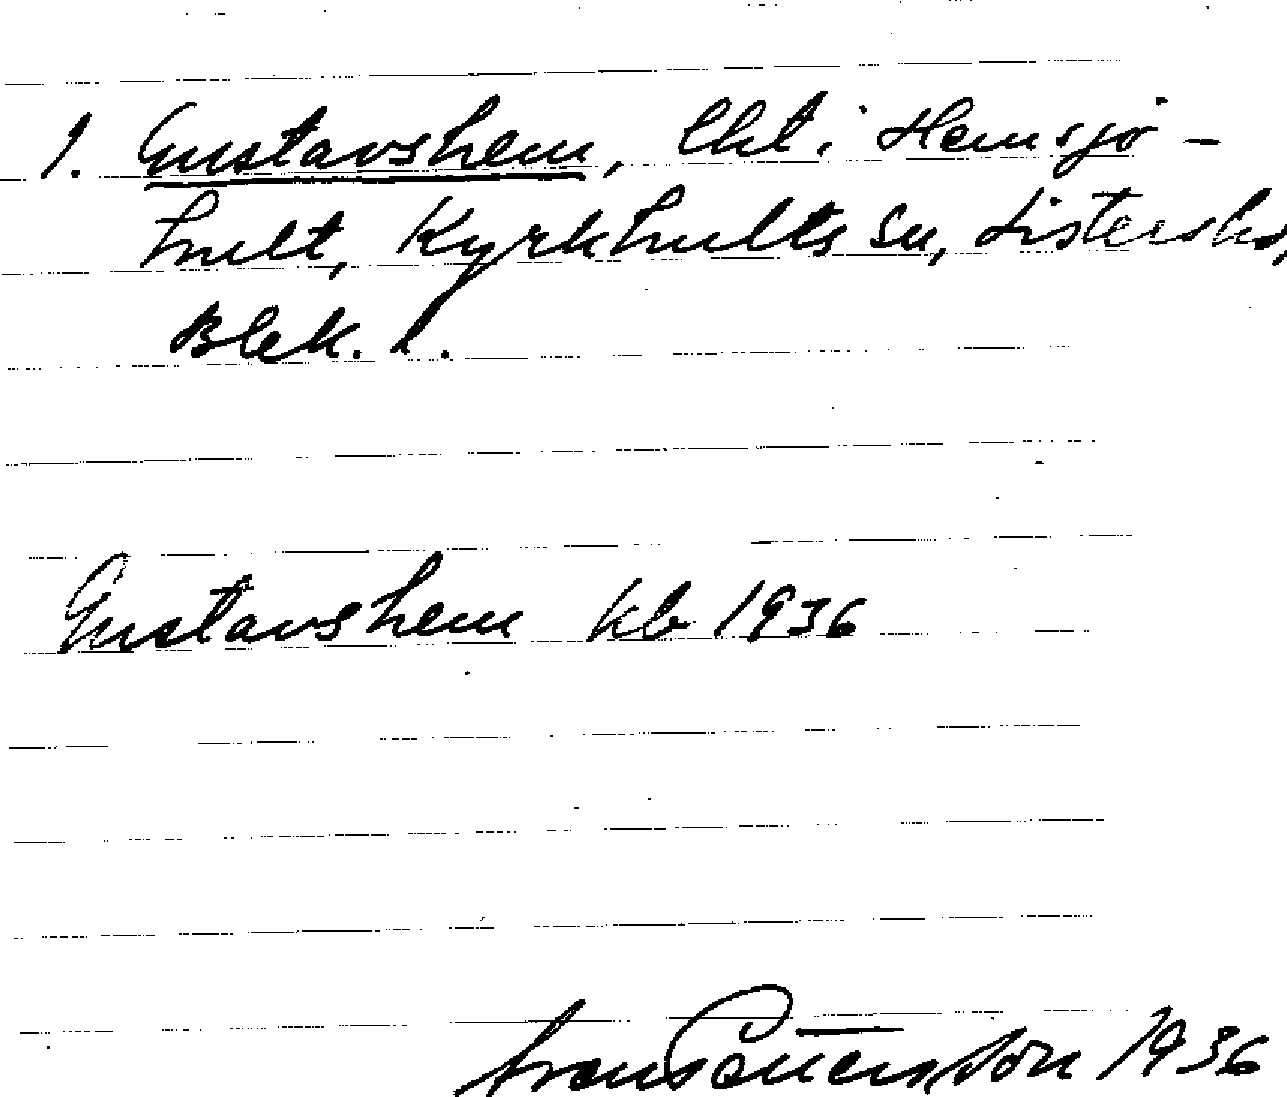 1. Gustavshem, lht. i Hemsjö-
hult, Kyrkhults sn, Listers hd,
Blek. l.
Gustavshem kb 1936
1936